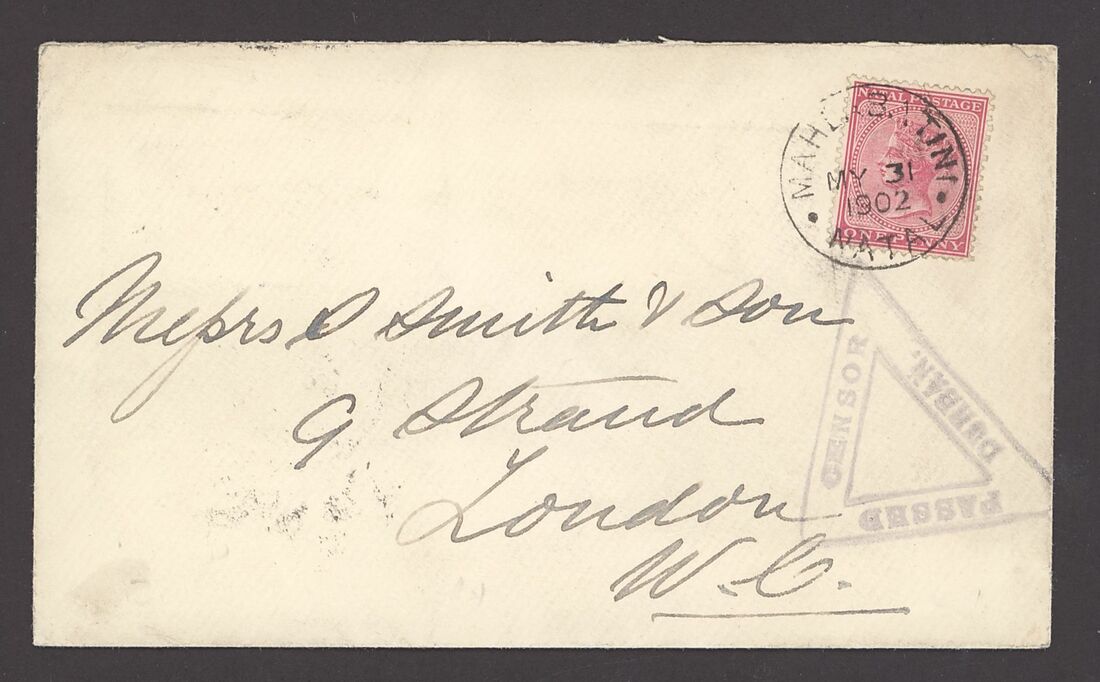 NATAL POSTAGE
ONE PENNY
MAHLABATINI
MY 31
1902
NATAL
Messrs S Smith & Son
9 Strand
London
W.C.
PASSED
CENSOR
DURBAN.